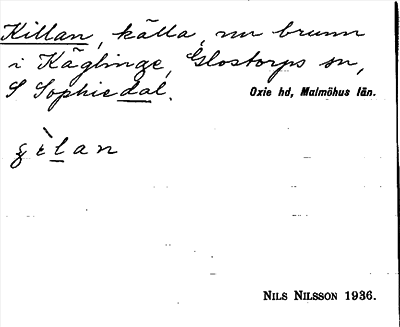 Killan, källa, nu brunn
i Käglinge, Glostorps sn,
S Sophiedal.
Oxie hd, Malmöhus län.
NILS NILSSON 1936.